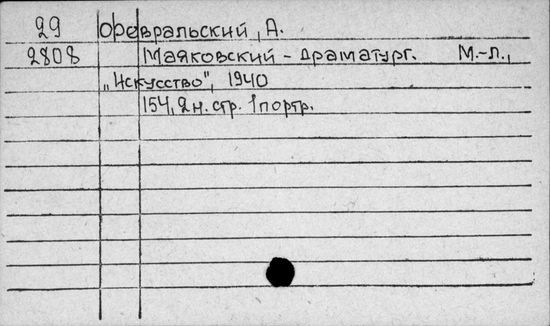 29 Февральский, А.
2808 Маяковский - драматург. М.-Л.,
"Искусство", 1940
154, 2 н. стр. 1 портр.